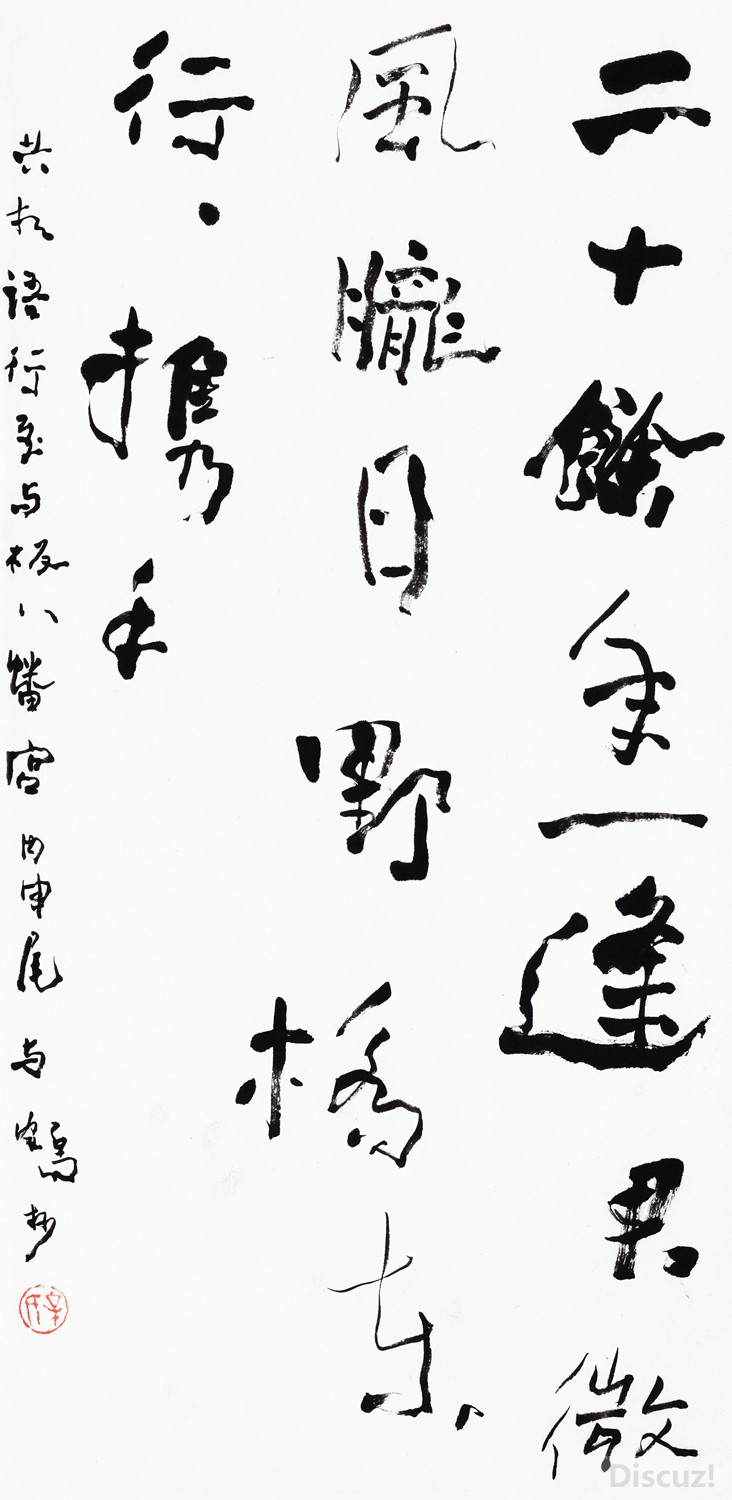 二十餘年一逢君微
風朧月野橋東
行·攜手
共 語行至与板八幡宮丙申尾与鶴抄
Discuz!